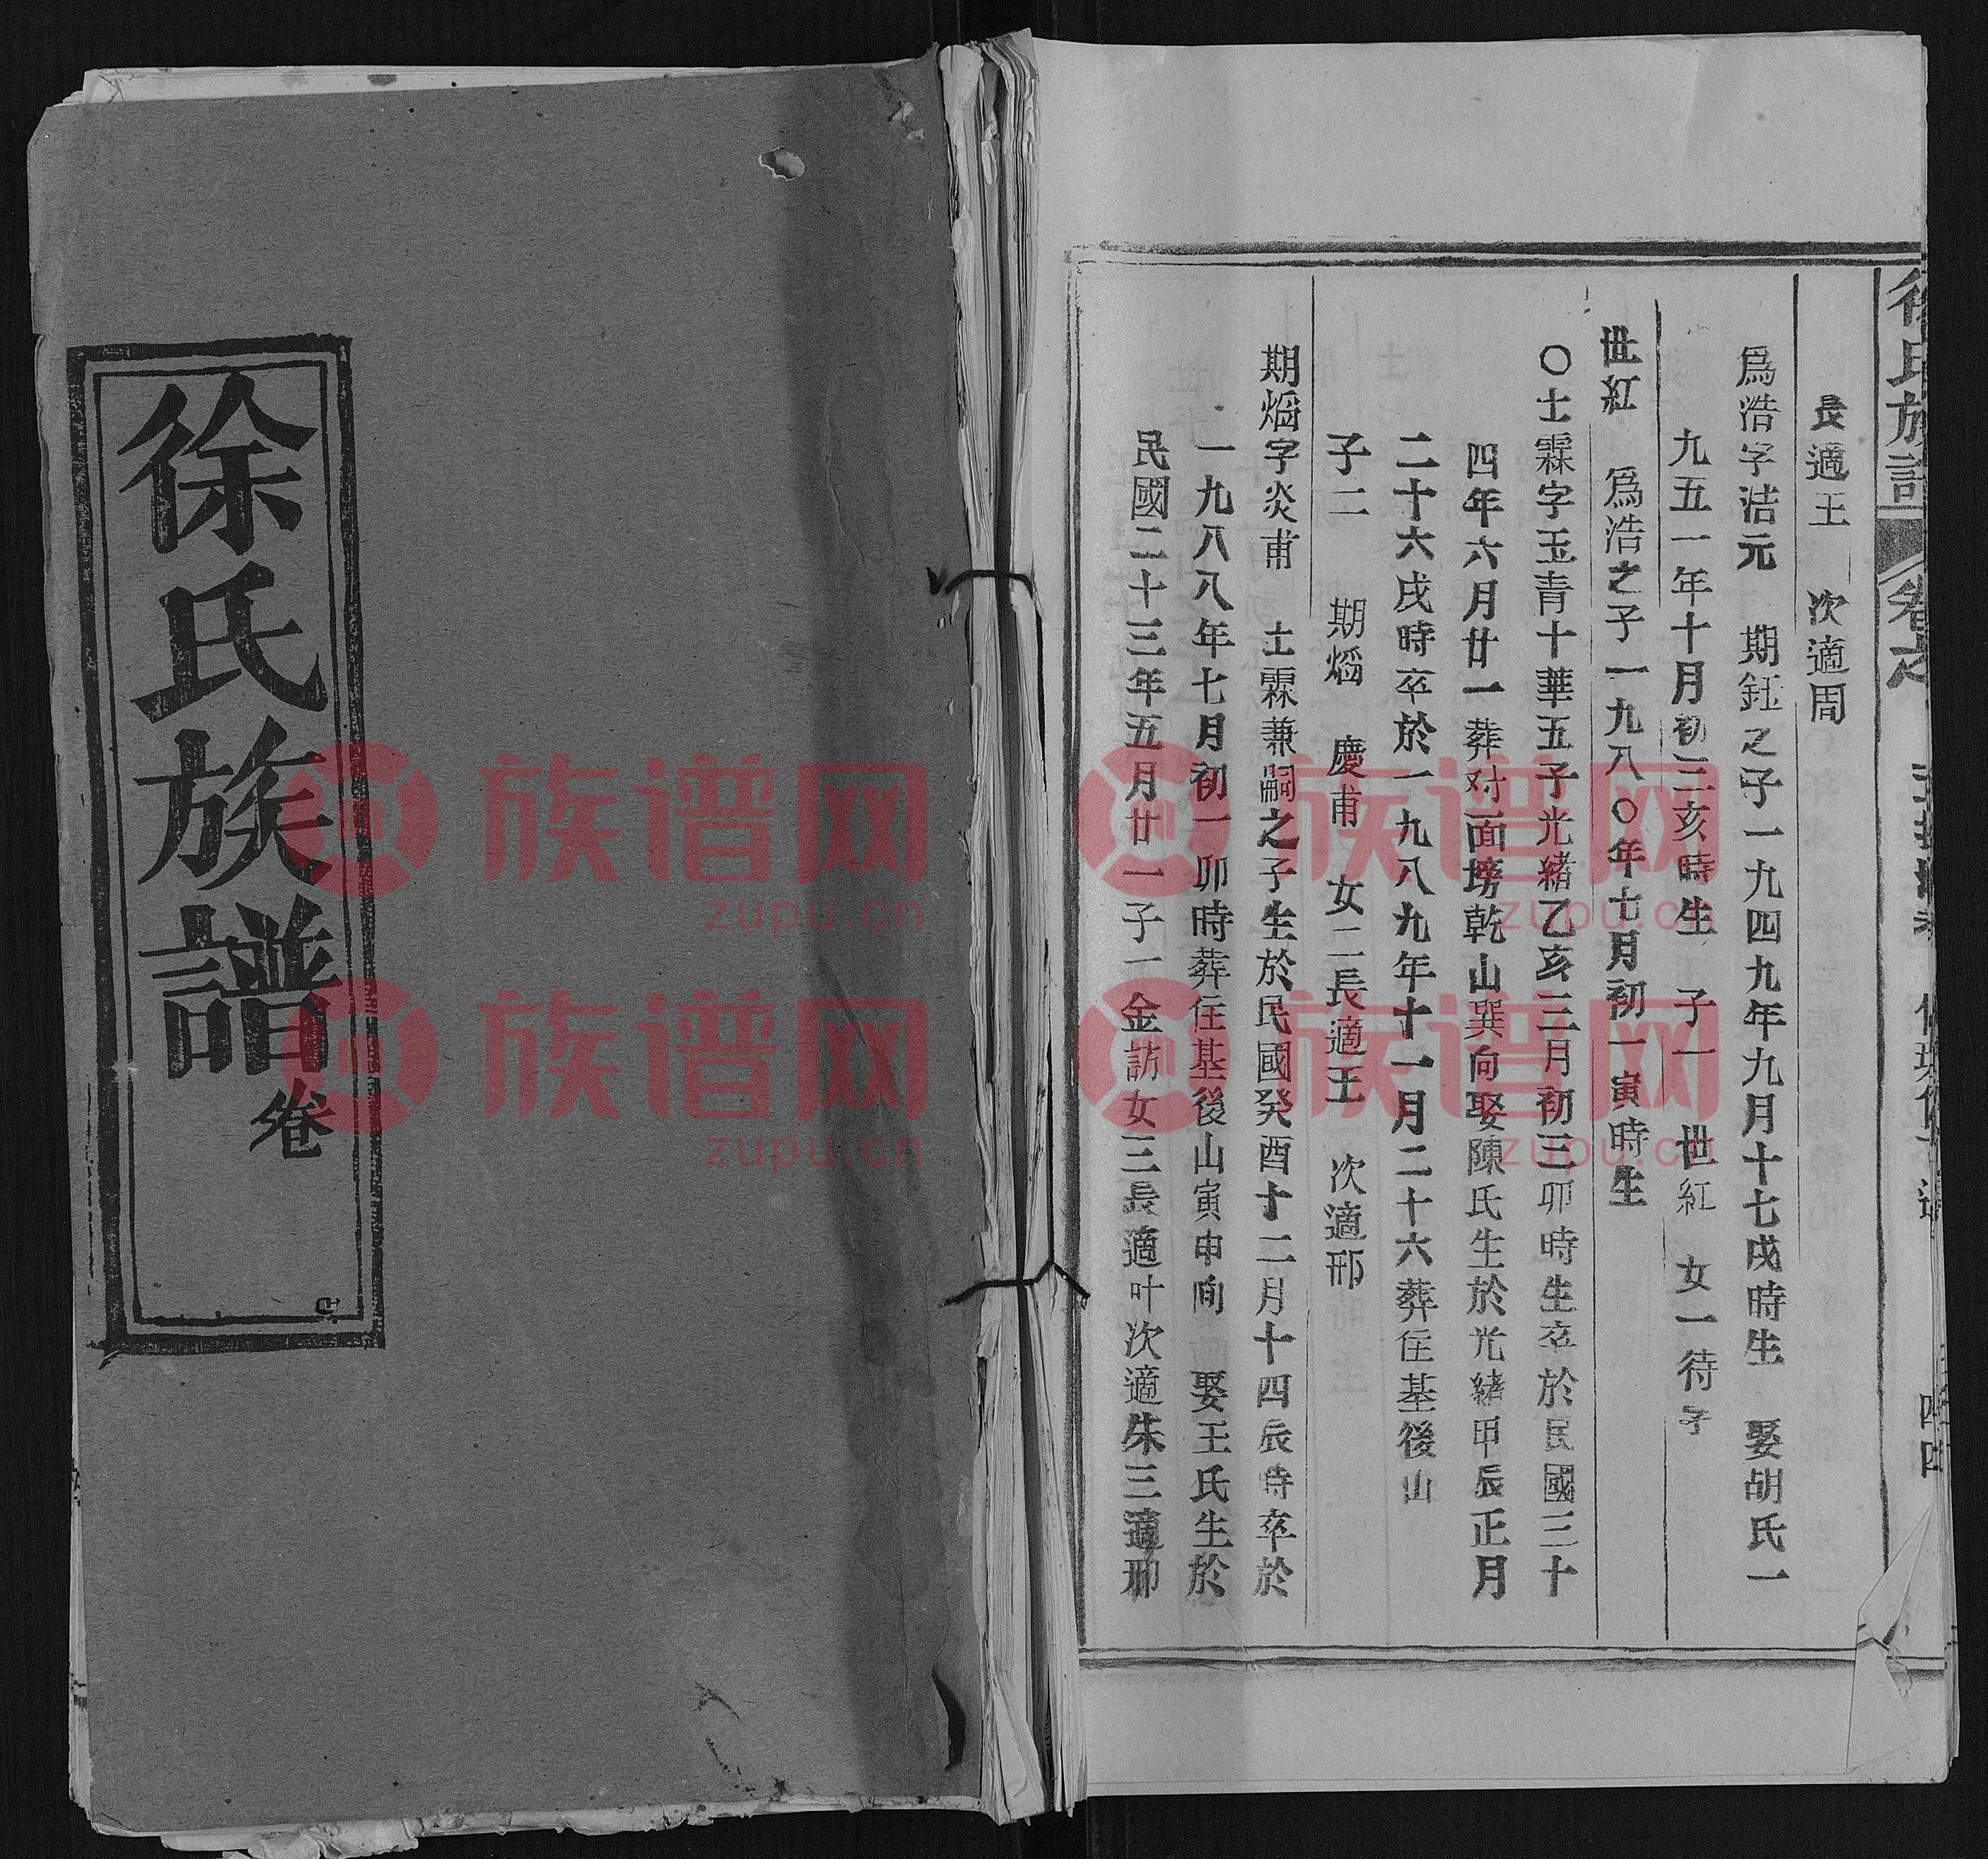 徐氏族譜
長適王 次適周
爲浩字洁元 期鈺之子一九四九年九月十七戌時生 娶胡氏一
九五一年十月初三亥時生 子一 世紅 女一待字
世紅 爲浩之子一九八〇年七月初一寅時生
〇士霖字玉青十華五子光緒乙亥三月初三卯時生卒於民國三十
四年六月廿一葬对面塝乾山巽向娶陳氏生於光緒甲辰正月
二十六戌時卒於一九八九年十一月二十六葬住基後山
子二 期熖 慶甫 女二長適王 次適邢
期熖字炎甫 士霖兼嗣之子生於民國癸酉十二月十四辰時卒於
一九八八年七月初一卯時葬住基後山寅申向 娶王氏生於
民國二十三年五月廿一子一金訪女三長適叶次適朱三適邢
四四
徐氏族譜卷
族谱网
zupu.cn
族谱网
zupu.cn
族谱网
zupu.cn
族谱网
zupu.cn